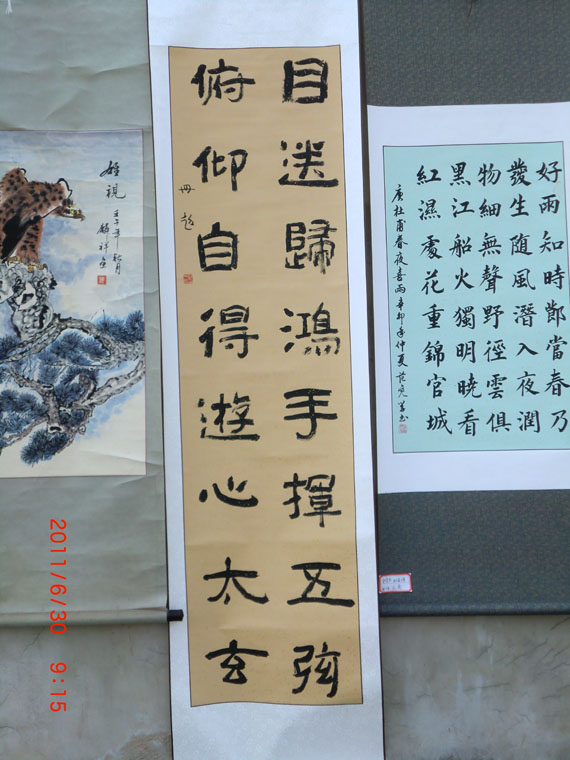 好雨知時節當春乃
發生随風潛入夜潤
物細無聲野徑雲俱
黑江船火獨明曉看
紅濕處花重錦官城
唐杜甫春夜喜雨辛卯年仲夏
目送歸鴻手揮五弦
俯仰自得遊心太玄
雄視
2011/6/30 9:15